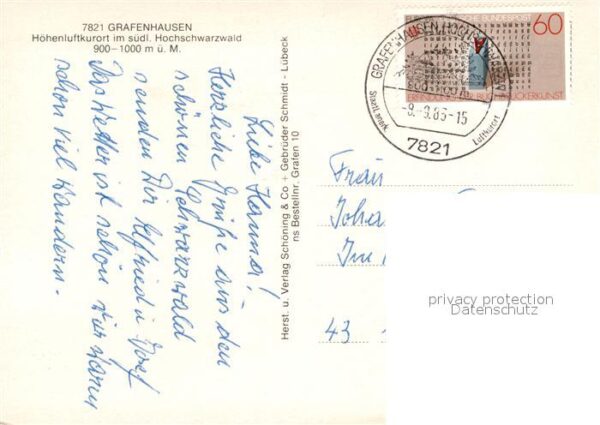 7821 GRAFENHAUSEN
Höhenluftkurort im südl. Hochschwarzwald
900–1000 m ü. M.
Liebe Hanna!
Herzliche Grüße aus dem
schönen Schwarzwald
senden Dir Elfried u Josef
Das Wetter ist schön zur warm
schon viel Wandern.
Herst. u. Verlag Schöning & Co + Gebrüder Schmidt - Lübeck
ns Bestellnr. Grafen 10
DEUTSCHE BUNDESPOST 60
ERFINDUNG DER BUCHDRUCKERKUNST
GRAFENHAUSEN, HOCHSCHWARZWALD
-9.85-15
Luftkurort
7821
Frau
Joha
Im
43
privacy protection
Datenschutz